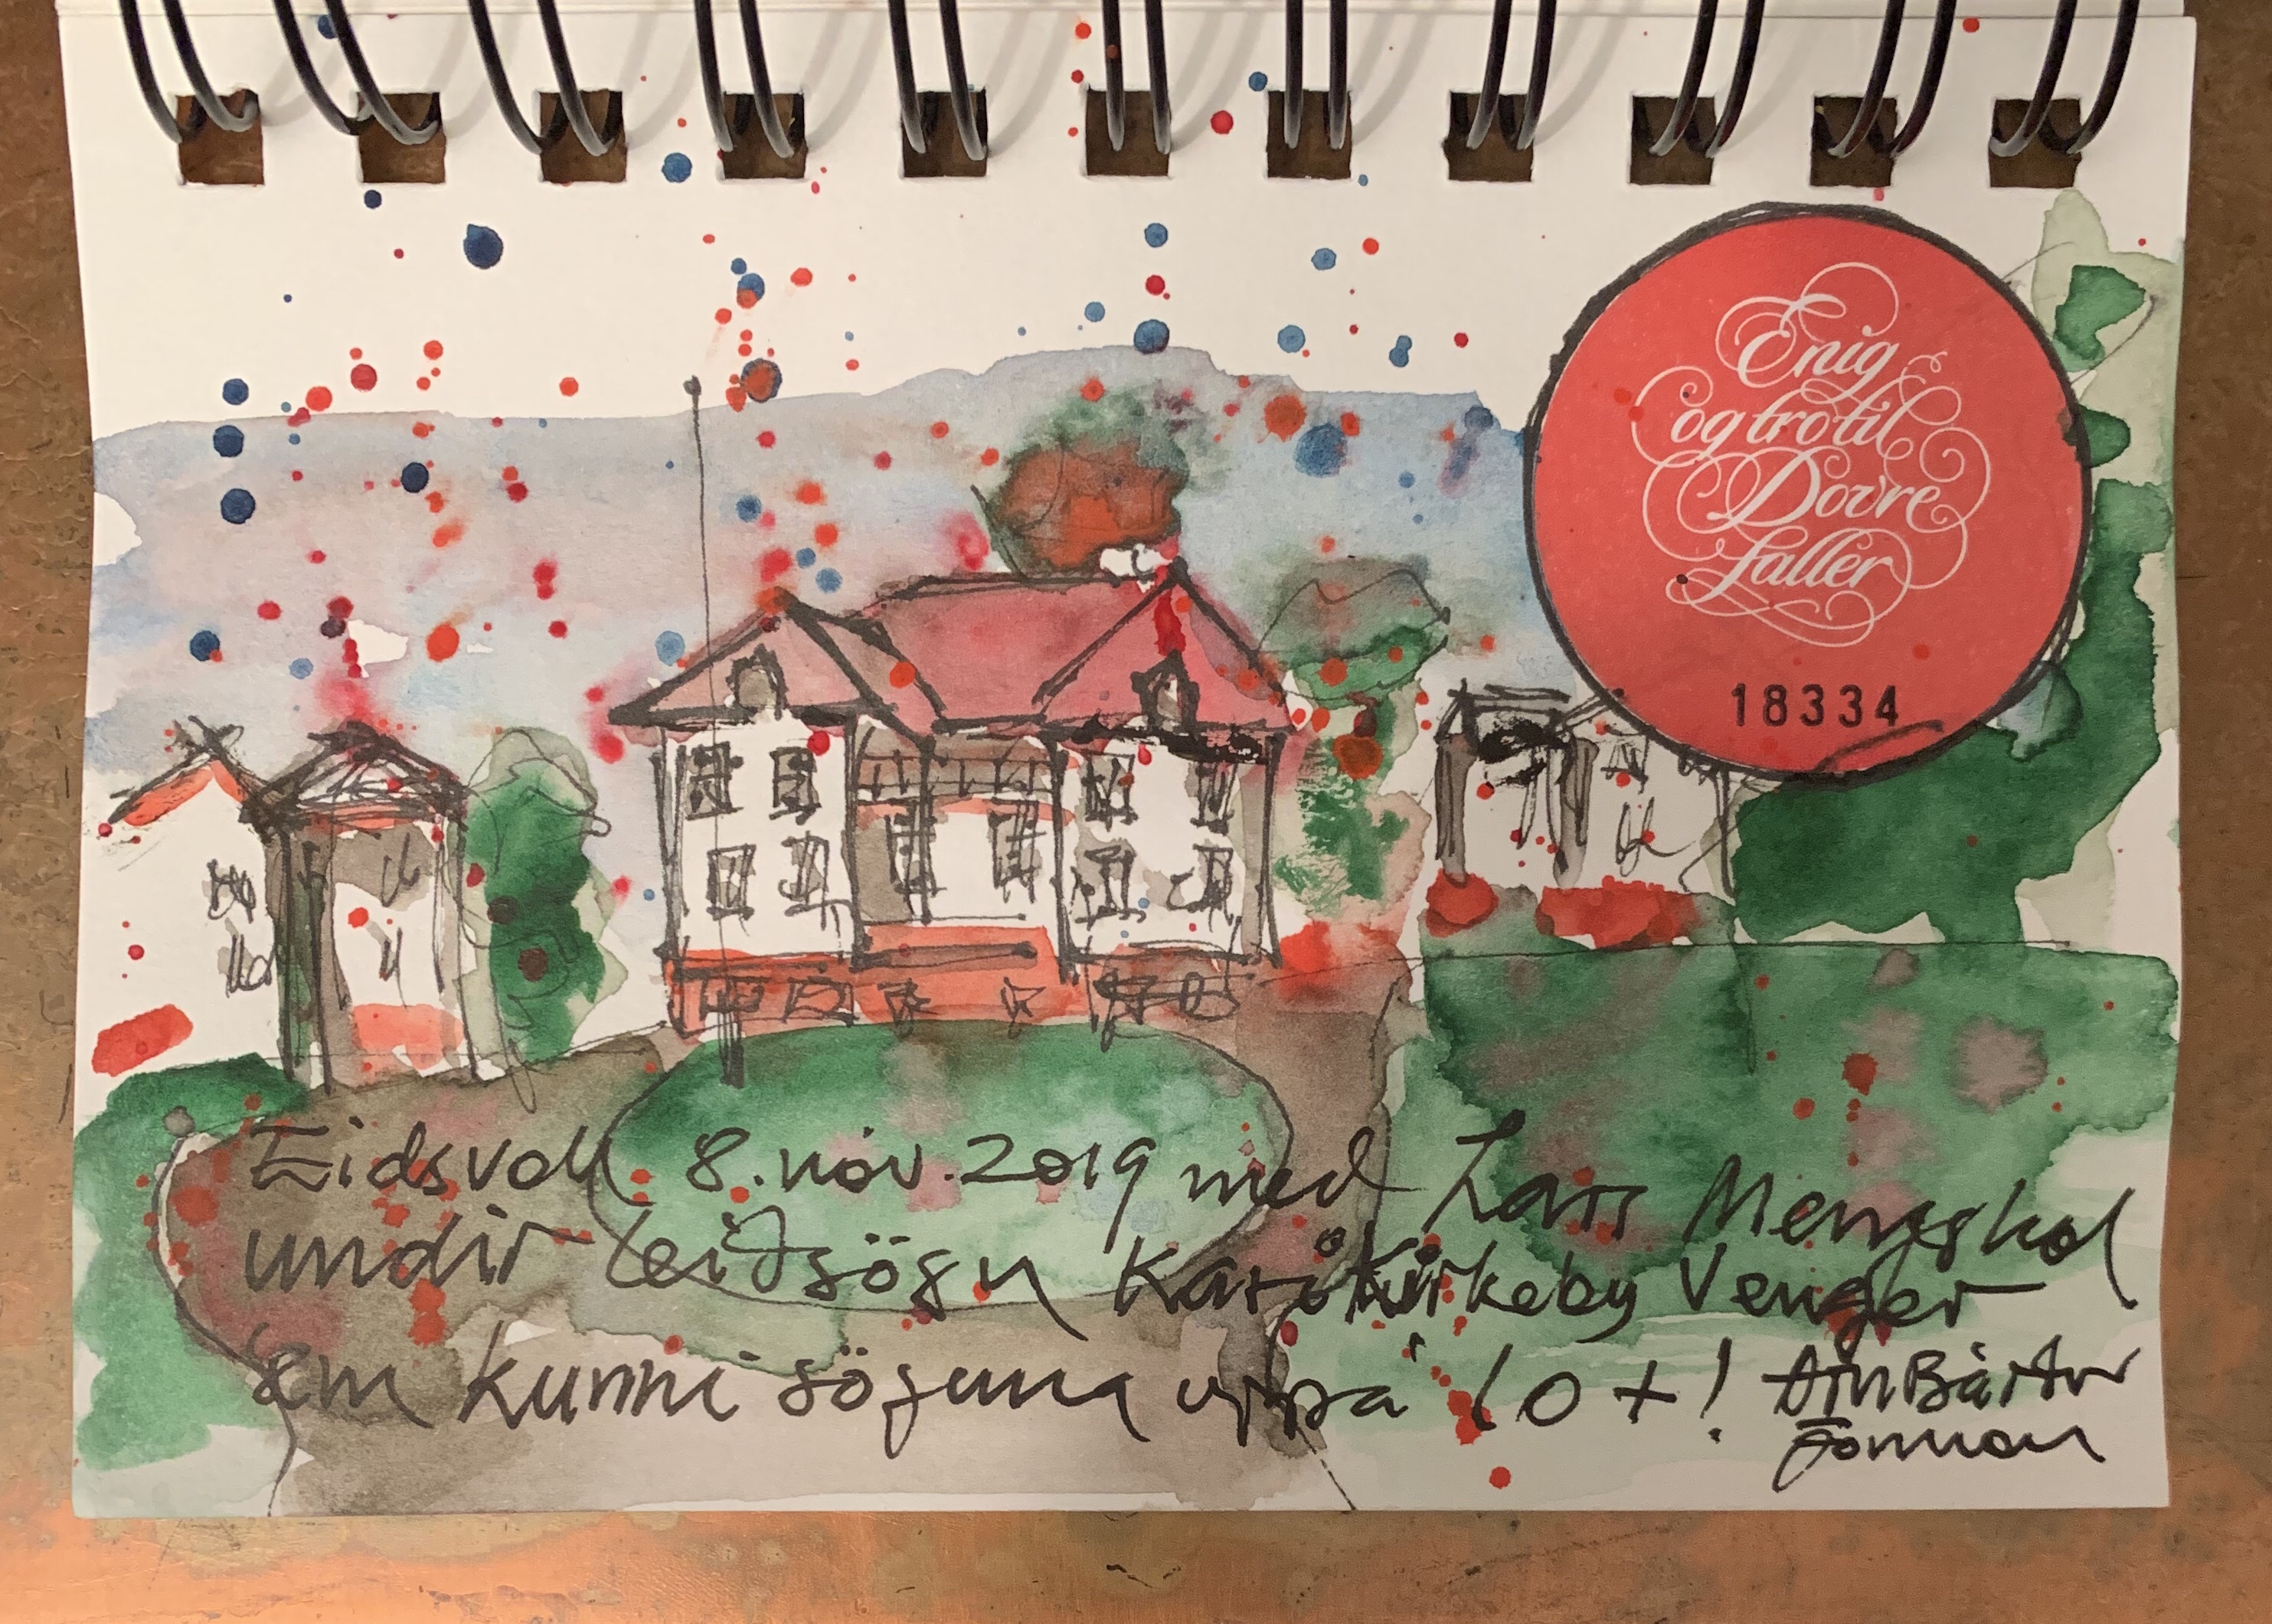 Enig
og tro til
Dovre
faller
18334
Eidsvoll 8. nóv. 2019 með Lars
undir leiðsögn Kari Kirkeby Venger
sem kunni söguna uppá 10+!